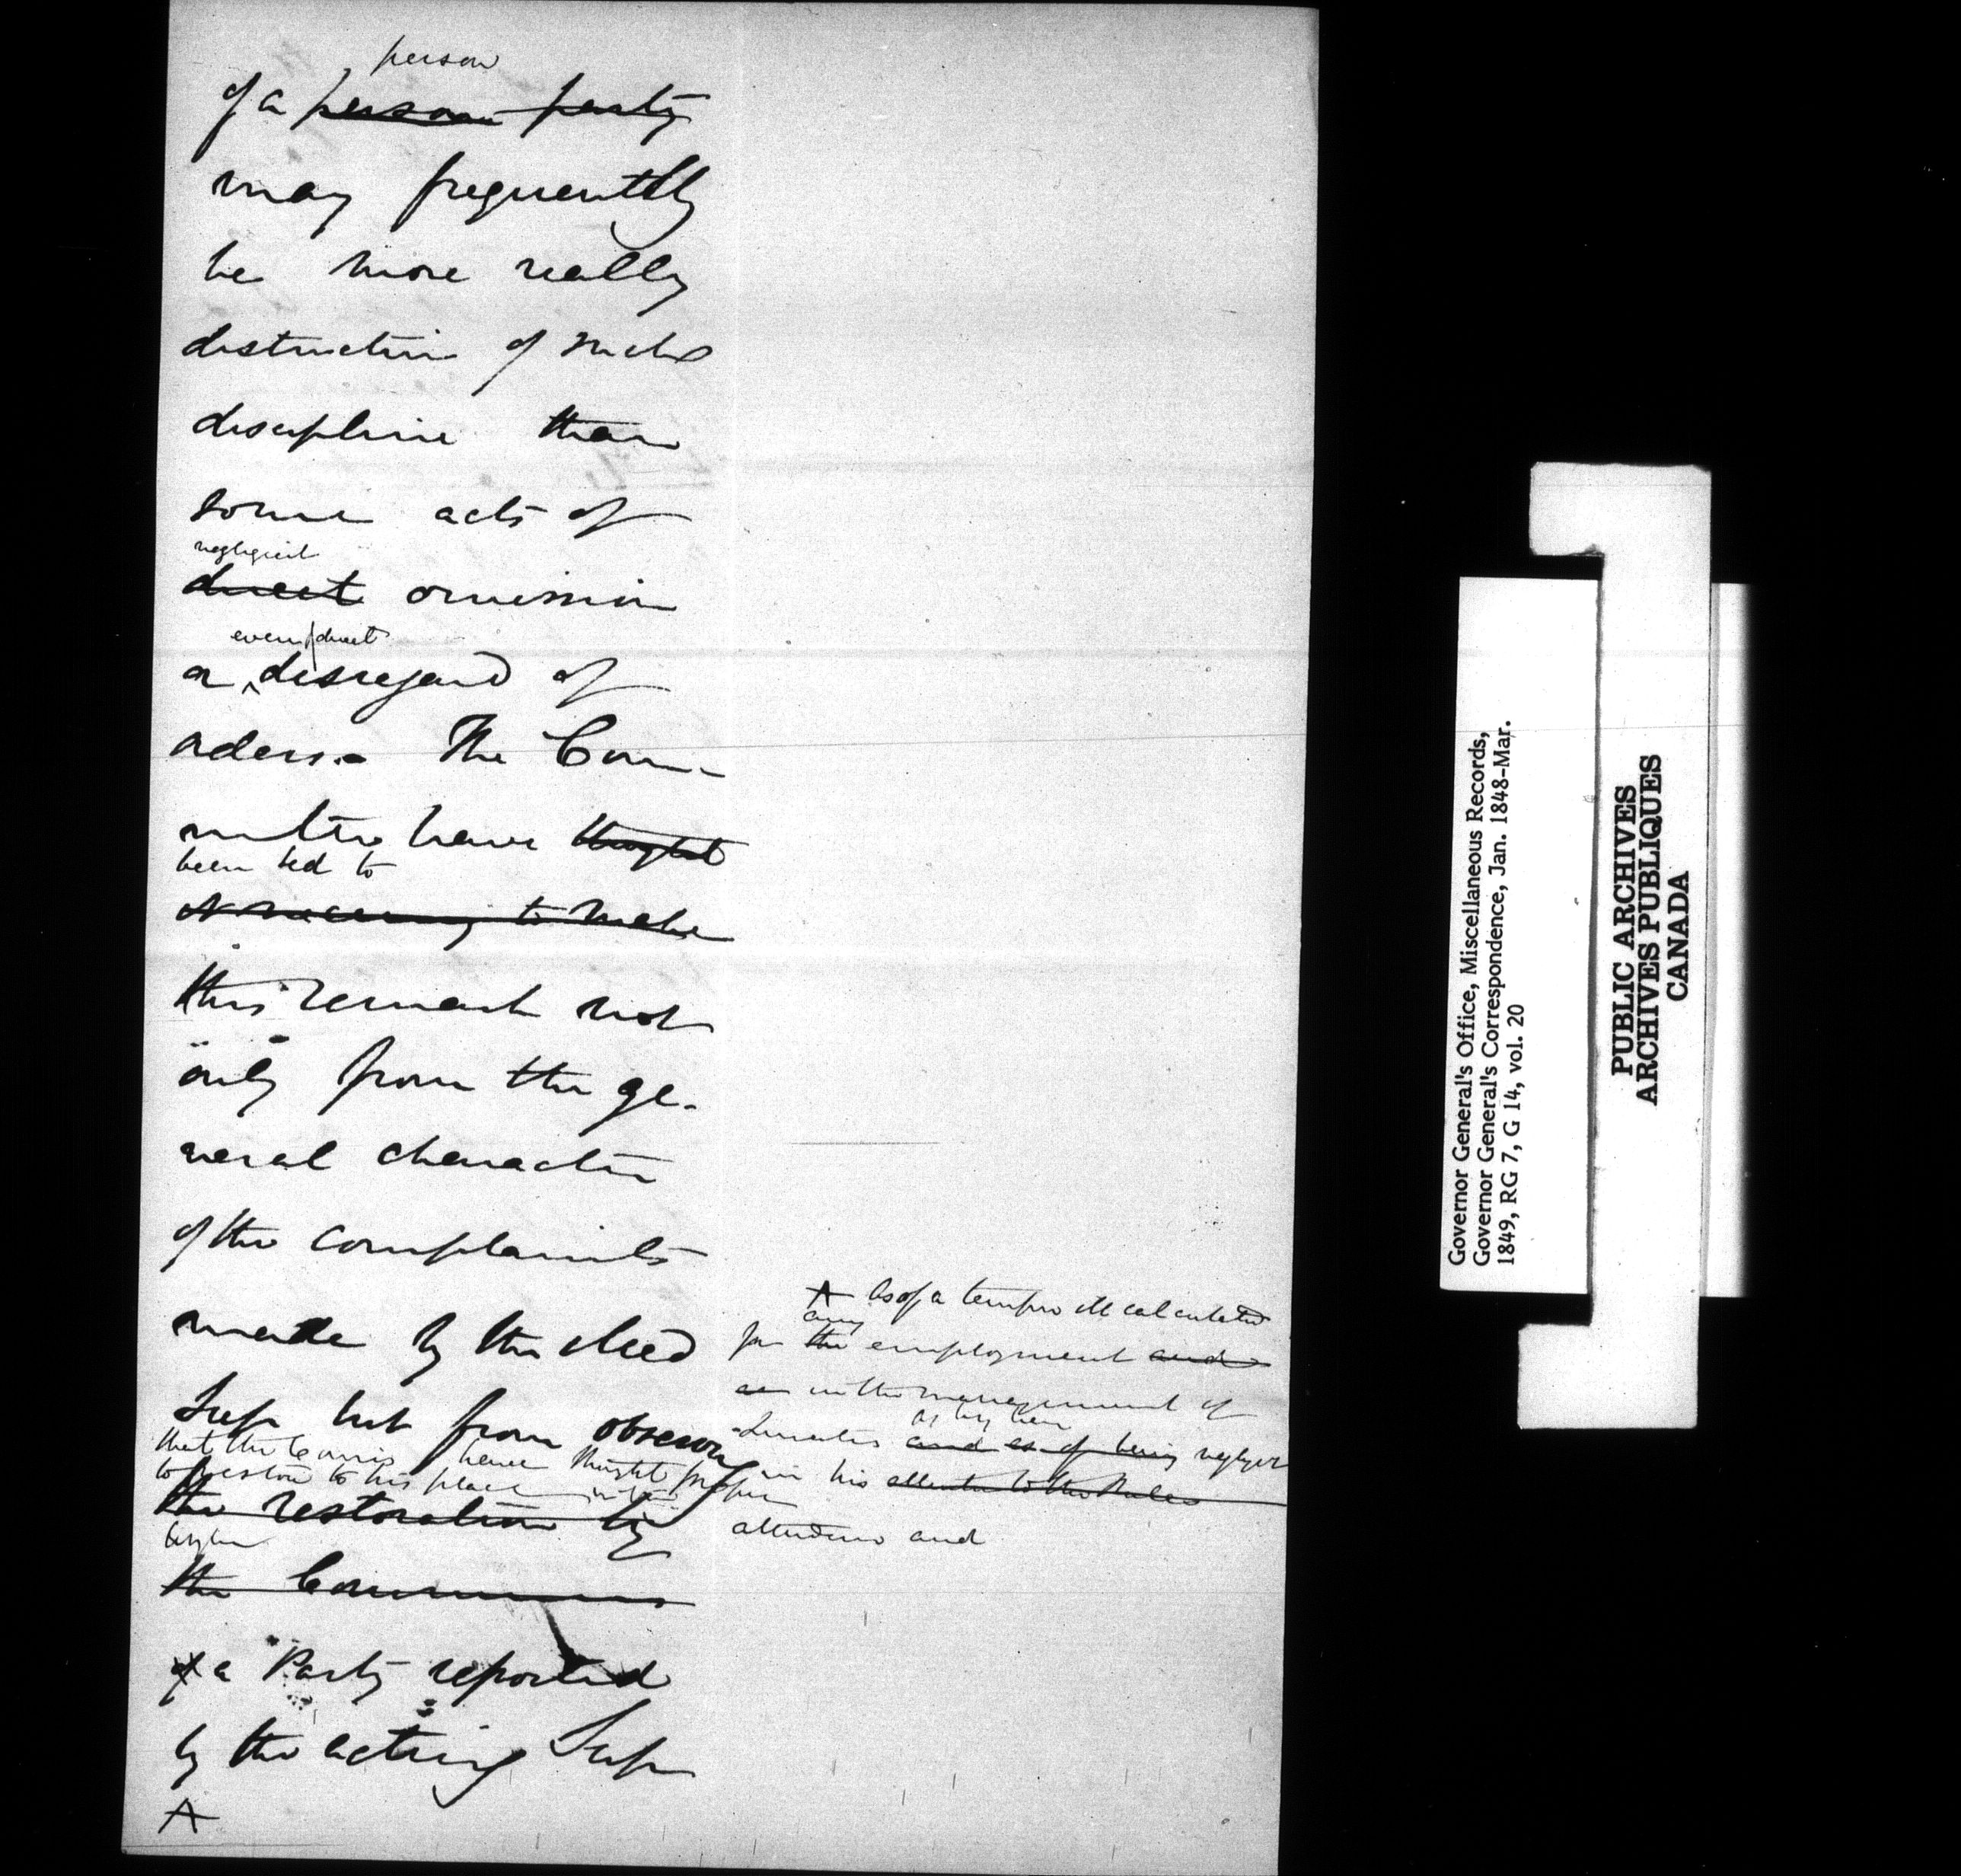 person
of a person party
may frequently
be more really
destructive of such
discipline than
some acts of
negligent
direct omission
even direct
or disregard of
orders. The Com-
mittee have thought
been led to
it necessary to make
this remark not
only from the ge-
neral character
of the complaints
made by the Med
Sup but from observing
that the Comrs have thought proper
to restore to his place in the
the restoration by
Asylum
the Commissioners
of a Party reported
by the acting Sup
A
A As of a temper ill calculated
any
for the employment and
as in the management of
as by him
Lunatics and as of being negligent
in his attention to the Rules
attendance and
Governor General's Office, Miscellaneous Records,
Governor General's Correspondence, Jan. 1848-Mar.
1849, RG 7, G 14, vol. 20
PUBLIC ARCHIVES
ARCHIVES PUBLIQUES
CANADA